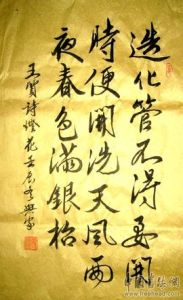 造化管不得要開
時便開洗天風雨
夜春色滿銀枱
王質詩燈花壬辰冬興家